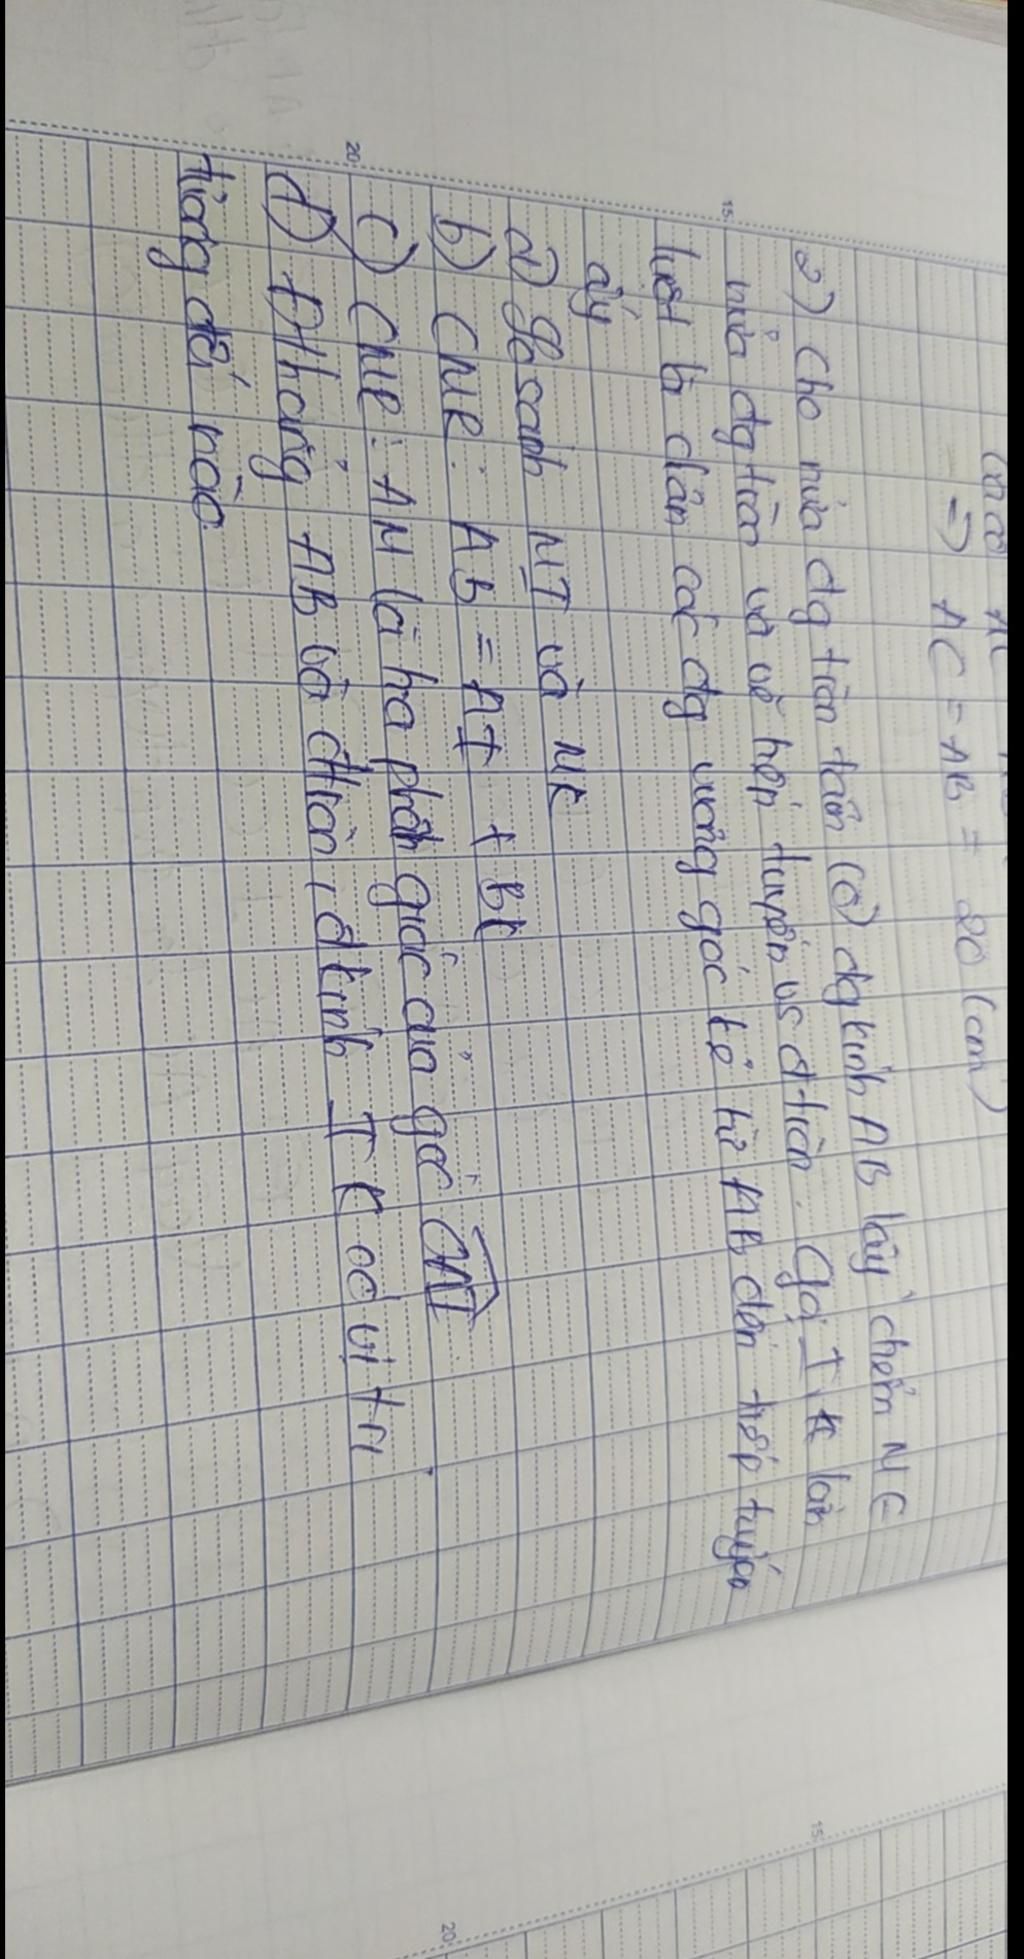 => AC = AB = 20 (cm)
2) Cho nửa đg tròn tâm (O) đg kính AB lấy điểm M ∈
nửa đg tròn và vẽ tiếp tuyến vs đtròn. Gọi I, K lần
lượt là chân các đg vuông góc kẻ từ A B đến tiếp tuyến
ấy
a) So sánh MI và MK
b) CMR: AB = AI + BK
c) CMR: AM là tia phân giác của góc OAI
d) Đthẳng AB và đtròn, đtính IK có vị trí
tương đối nào
15
20
15
20